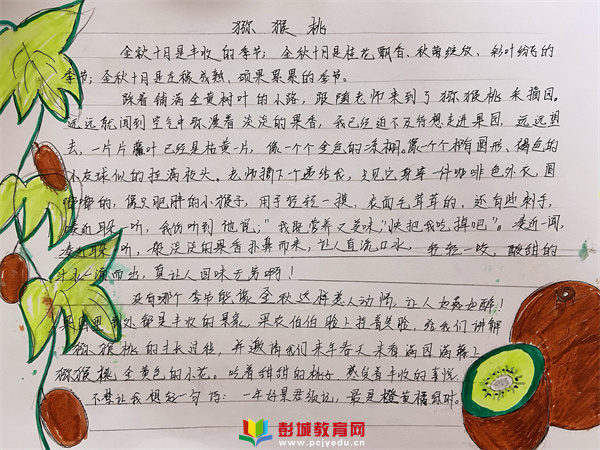 猕猴桃
金秋十月是丰收的季节；金秋十月是桂花飘香、秋菊绽放、彩叶纷飞的
季节；金秋十月是走猕成熟、硕果累累的季节。
踩着铺满金黄树叶的小路，跟陶老师来到了猕猴桃采摘园。
远远就闻到空气中弥漫着淡淡的果香，我已经迫不及待想走进果园，远远望
去，一片片藤叶已经是枯黄一片，像一个个金色的凉棚。像一个个椭圆形、褐色的
小灰球似的挂满枝头。老师摘下个递给我，只见它身穿一件咖啡色外衣，圆
嘟嘟的，像只肥胖的小猴子，用手轻轻一摸，表面毛茸茸的，还有些刺手，
凑近耳朵一听，我仿佛听到他说：“我既营养又美味，快把我吃掉吧”。凑近一闻，
一股淡淡的果香扑鼻而来，让人直流口水，轻轻一咬，酸甜的
汁水一涌而出，真让人回味无穷啊！
没有哪个季节能像金秋这样惹人动情，让人也痴也醉！
果园里到处都是丰收的果实，果农伯伯脸上挂着笑脸，给我们讲解
猕猴桃的生长过程，并邀请我们来年春天来看满园满藤上
猕猴桃金黄色的小花。吃着甜甜的桃子，想象着丰收的喜悦，
不禁让我想起一句诗：一年好景君须记，最是橙黄橘绿时。
彭城教育网
www.pcjyedu.cn